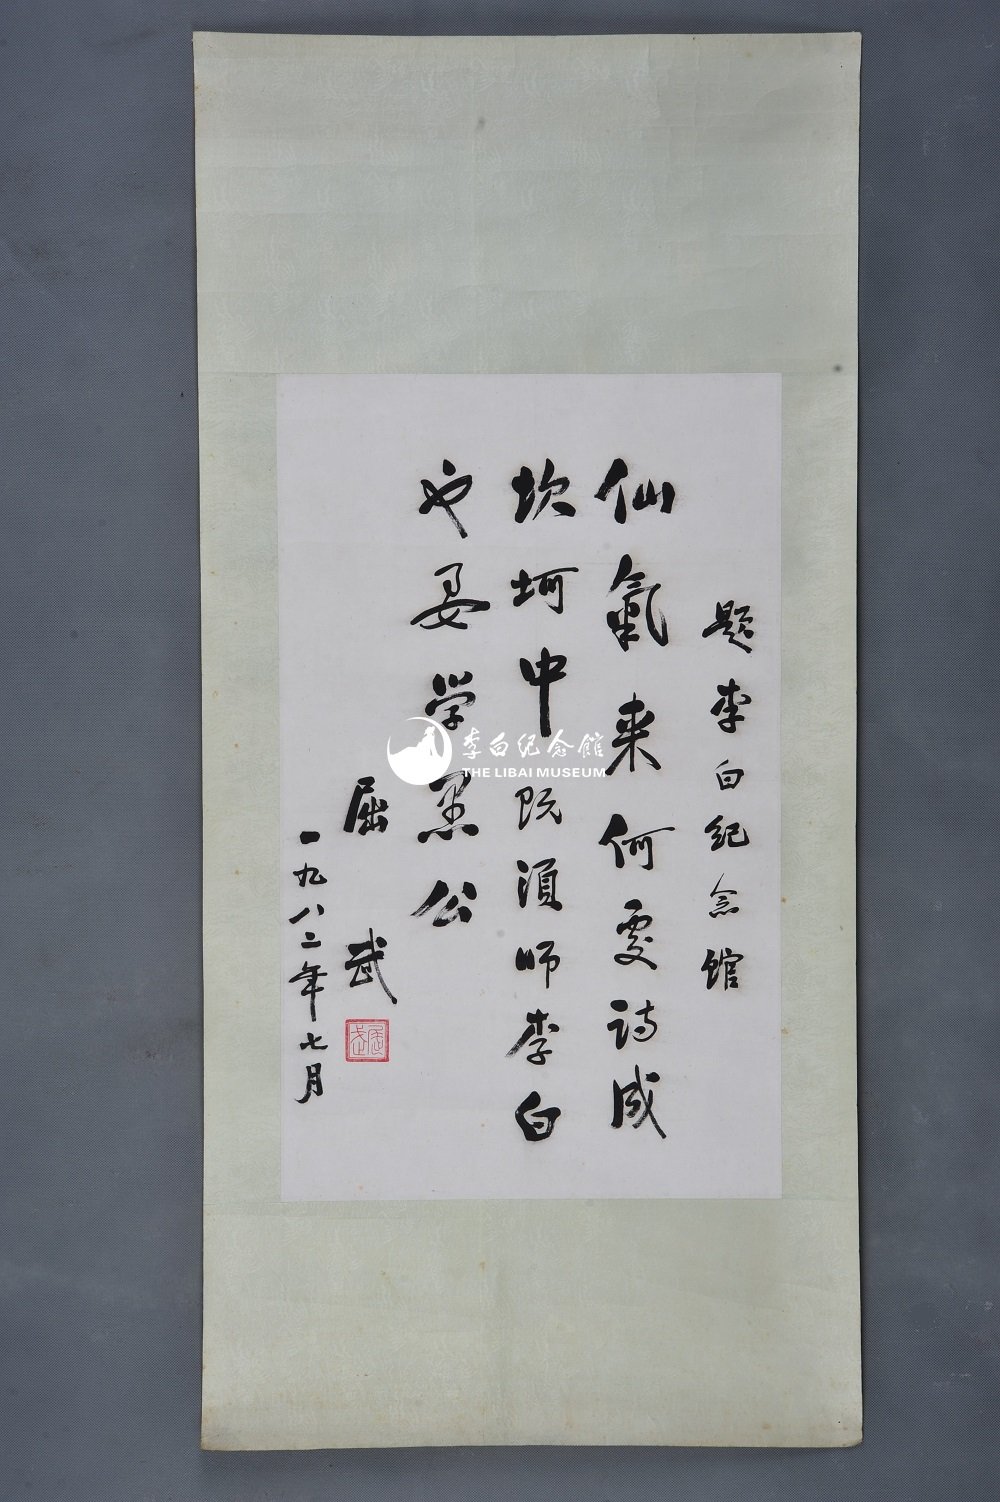 题李白纪念馆
仙氣来何處诗成
坎坷中既須师李白
也要学愚公
屈武
一九八二年七月
屈武
李白纪念館
THE LIBAI MUSEUM